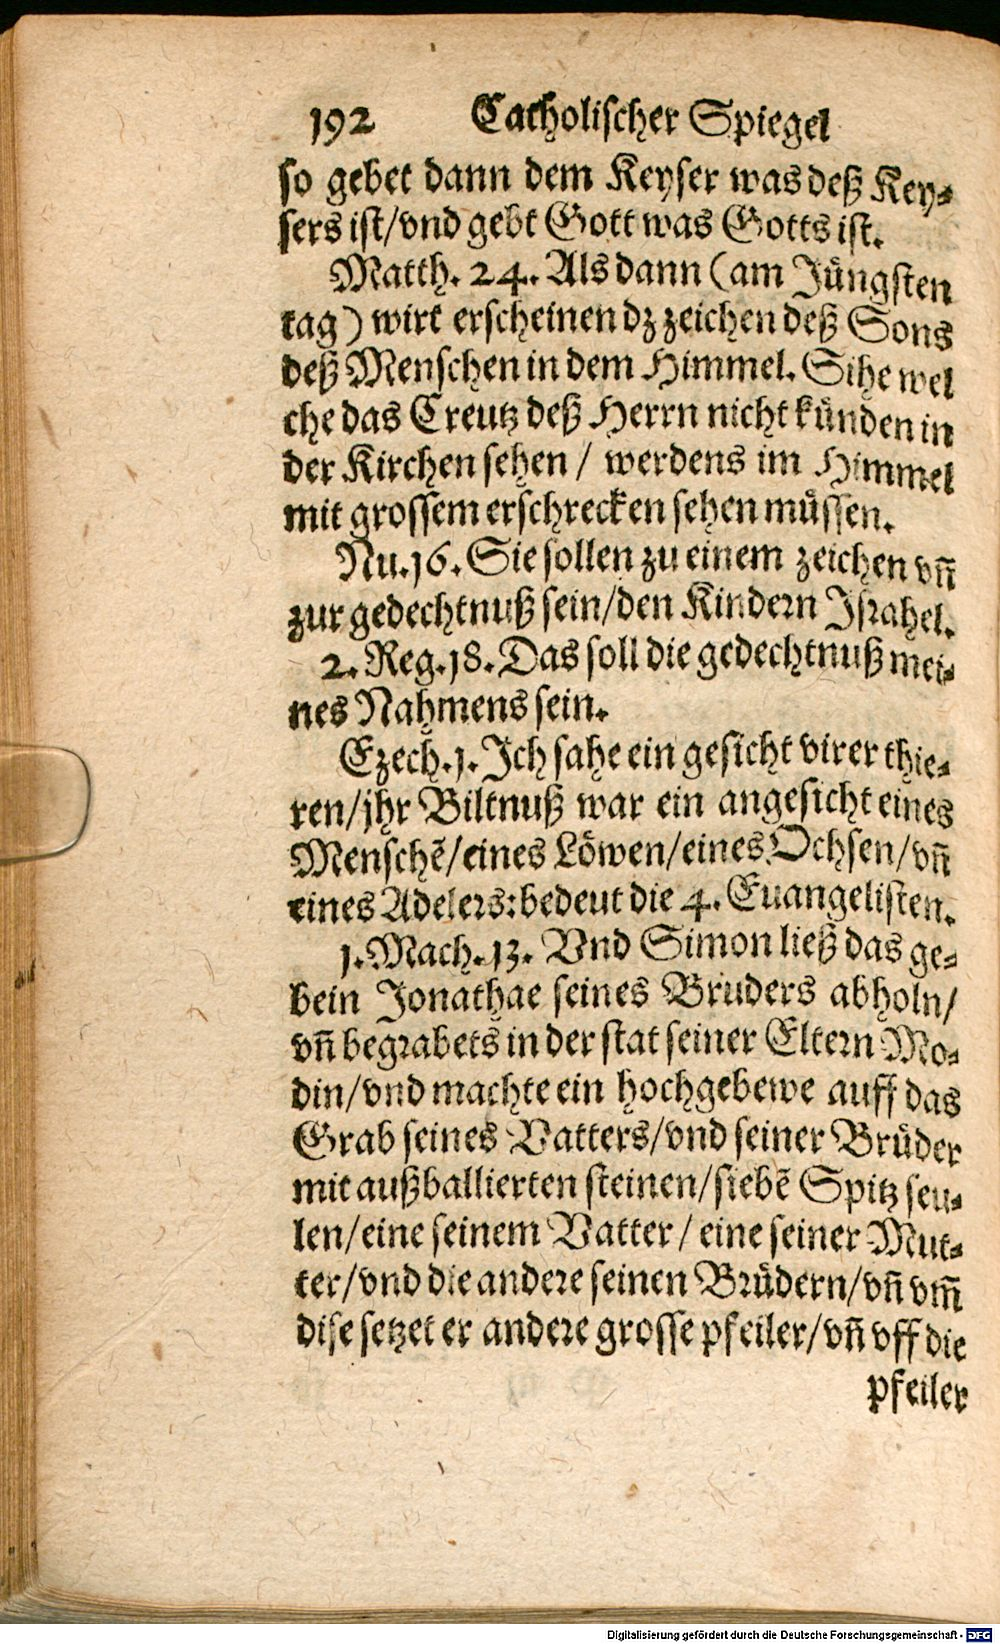 192 Catholischer Spiegel
so gebet dann dem Keyser was deß Key⸗
sers ist/vnd gebt Gott was Gotts ist.
Matth. 24. Als dann (am Jüngsten
tag) wirt erscheinen dz zeichen deß Sons
deß Menschen in dem Himmel. Sihe wel
che das Creutz deß Herrn nicht künden in
der Kirchen sehen / werdens im Himmel
mit grossem erschrecken sehen müssen.
Nu. 16. Sie sollen zu einem zeichen vñ
zur gedechtnuß sein/den Kindern Israhel.
2. Reg. 18. Das soll die gedechtnuß mei⸗
nes Nahmens sein.
Ezech. 1. Ich sahe ein gesicht virer thie⸗
ren/jhr Biltnuß war ein angesicht eines
Menschẽ/eines Löwen/eines Ochsen/vñ
eines Adelers: bedeut die 4. Euangelisten.
1. Mach. 13. Vnd Simon ließ das ge⸗
bein Jonathae seines Bruders abholn/
vñ begrabets in der stat seiner Eltern Mo⸗
din/vnd machte ein hochgebewe auff das
Grab seines Vatters/vnd seiner Brüder
mit außballierten steinen/siebẽ Spitz seu⸗
len/eine seinem Vatter / eine seiner Mut⸗
ter/vnd die andere seinen Brüdern/vñ vm̃
dise setzet er andere grosse pfeiler/vñ vff die
pfeiler
Digitalisierung gefördert durch die Deutsche Forschungsgemeinschaft - DFG